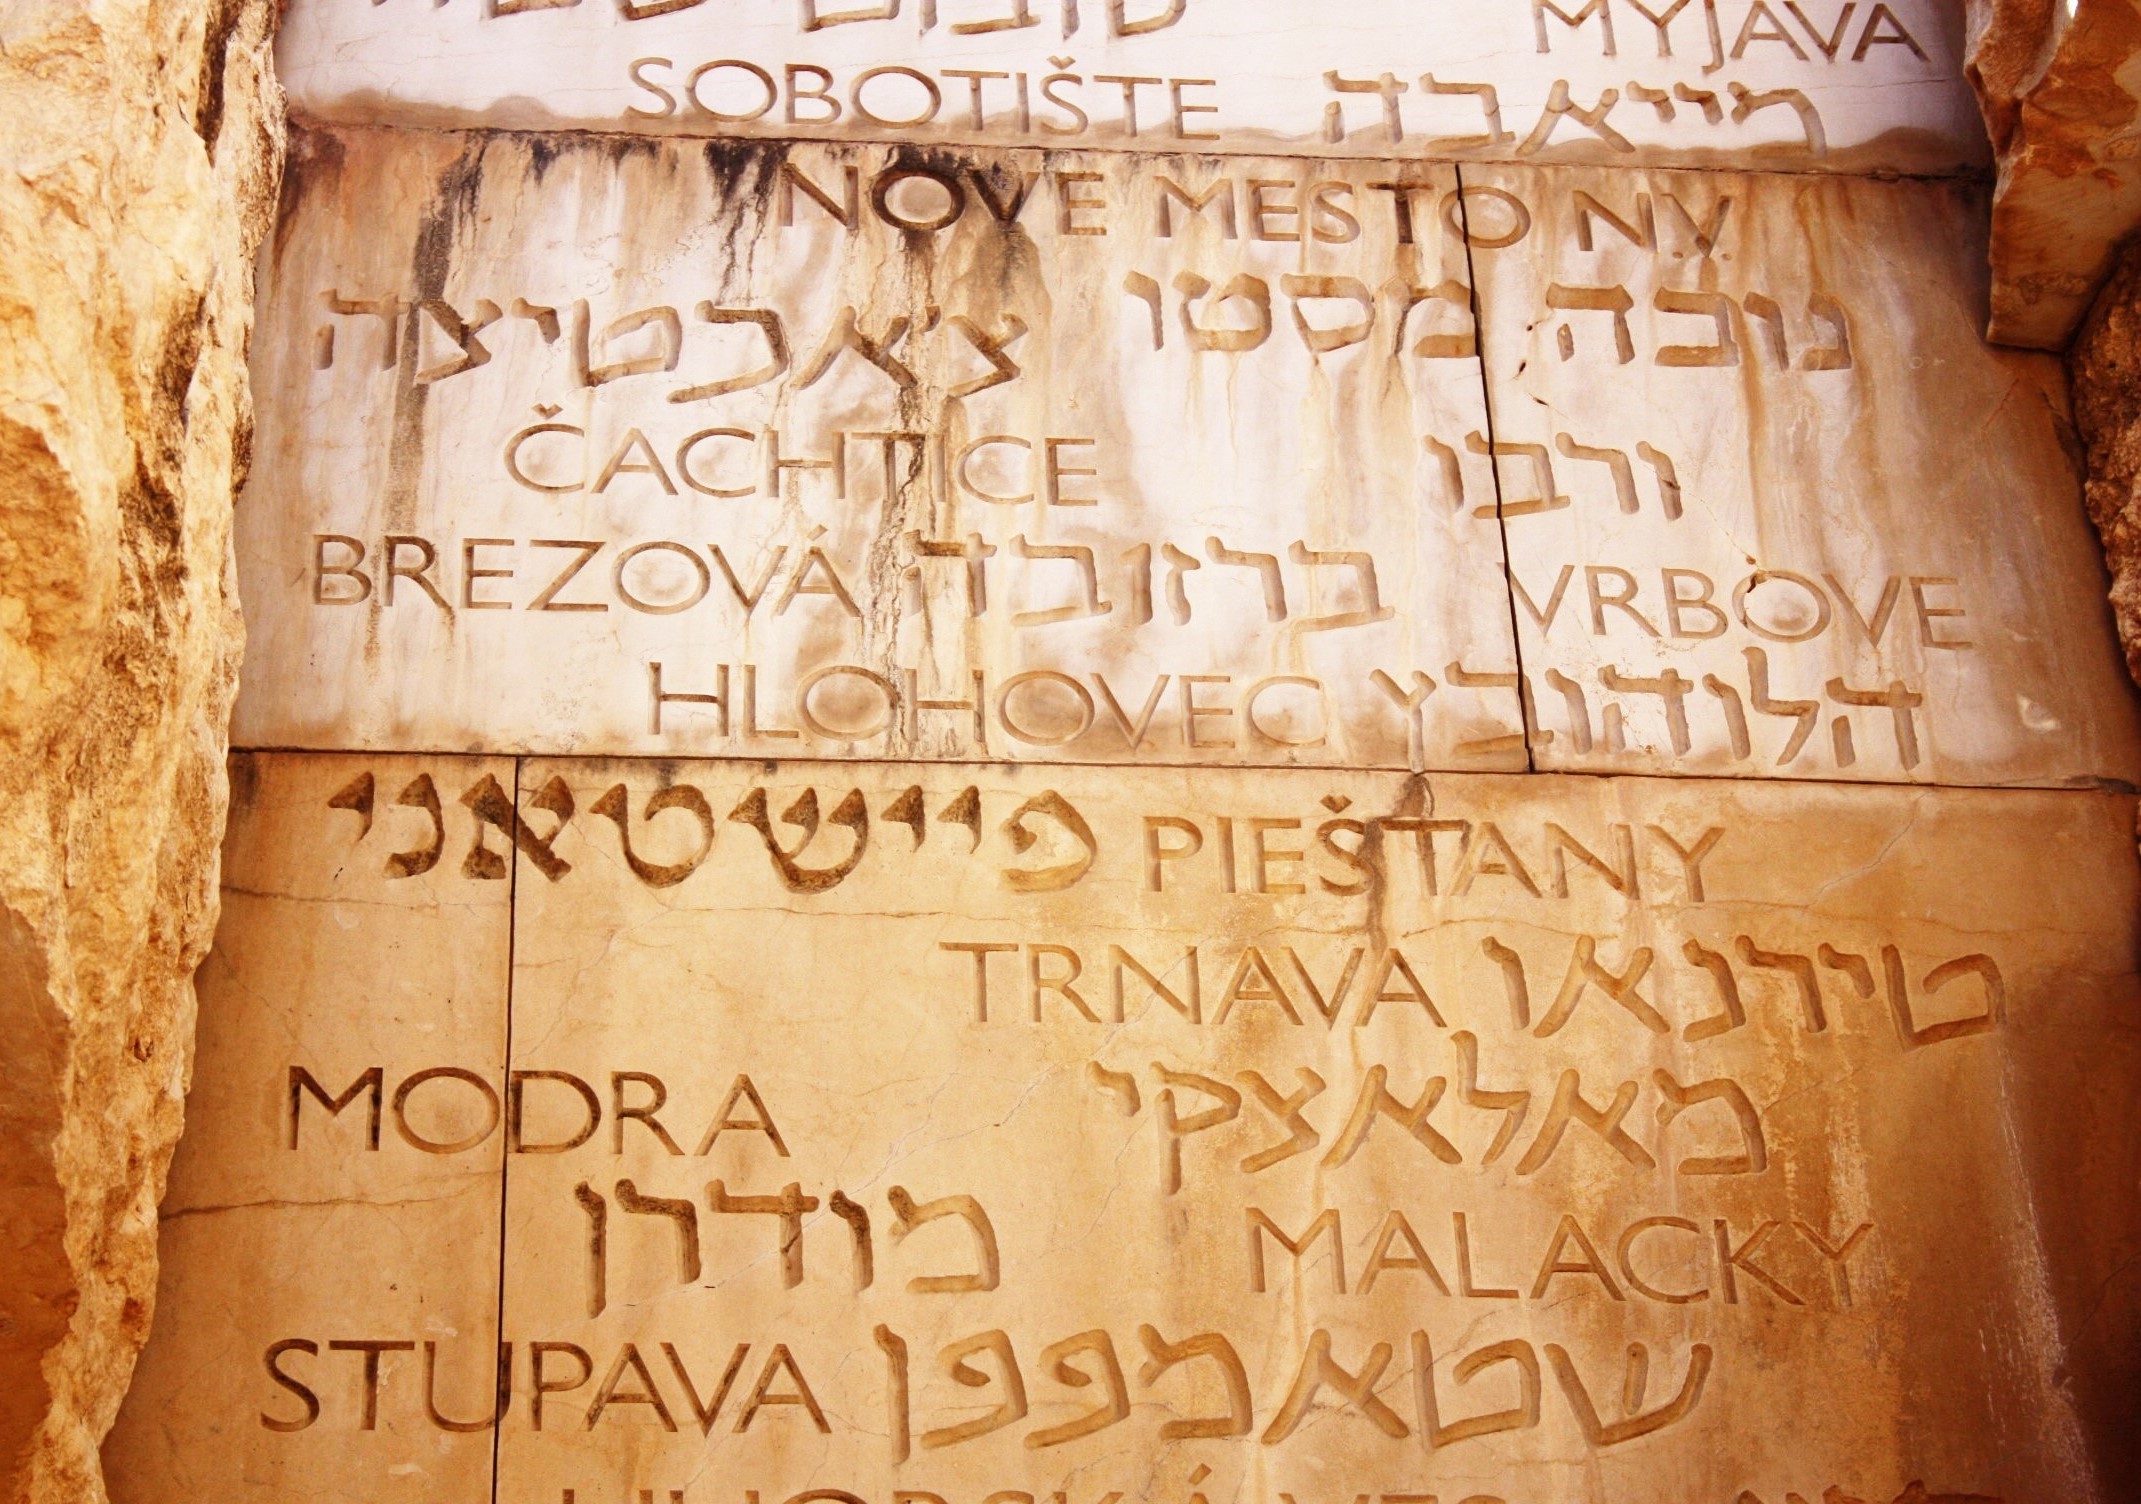 MYJAVA
SOBOTIŠTE מייאבה
NOVE MESTO N.V.
נובה מסטו
צ'אכטיצה
ČACHTICE
ורבו
BREZOVÁ ברזובה
VRBOVE
HLOHOVEC הלוהובץ
פיישטאני PIEŠTANY
TRNAVA טירנאו
MODRA מאלאצקי
מודרן MALACKY
STUPAVA שטאמפפן